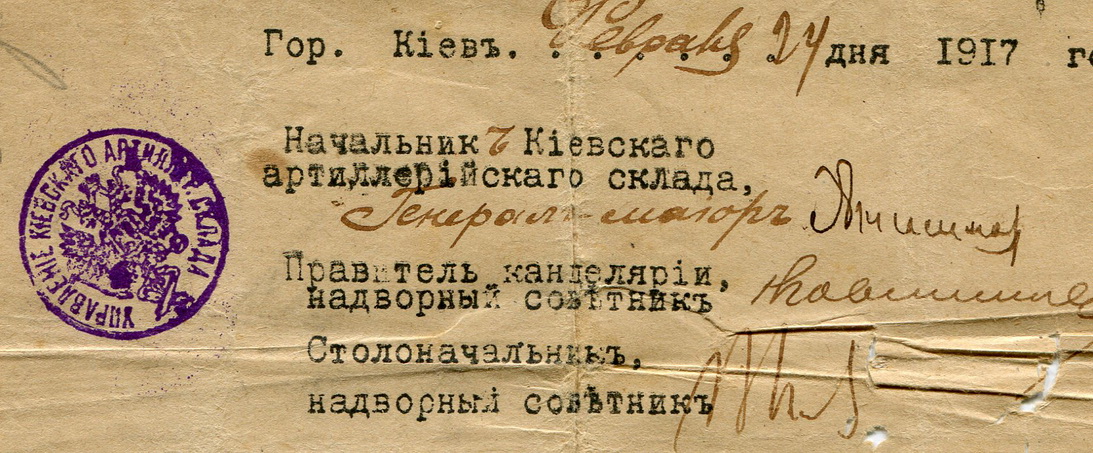 Гор. Кіевъ. Февраля 24 дня 1917 го
УПРАВЛЕНІЕ КІЕВСКАГО АРТИЛЛ. СКЛАДА
Начальникъ Кіевскаго
артиллерійскаго склада,
Генералъ-маіоръ
Правитель канцеляріи,
надворный совѣтникъ
Столоначальникъ,
надворный совѣтникъ